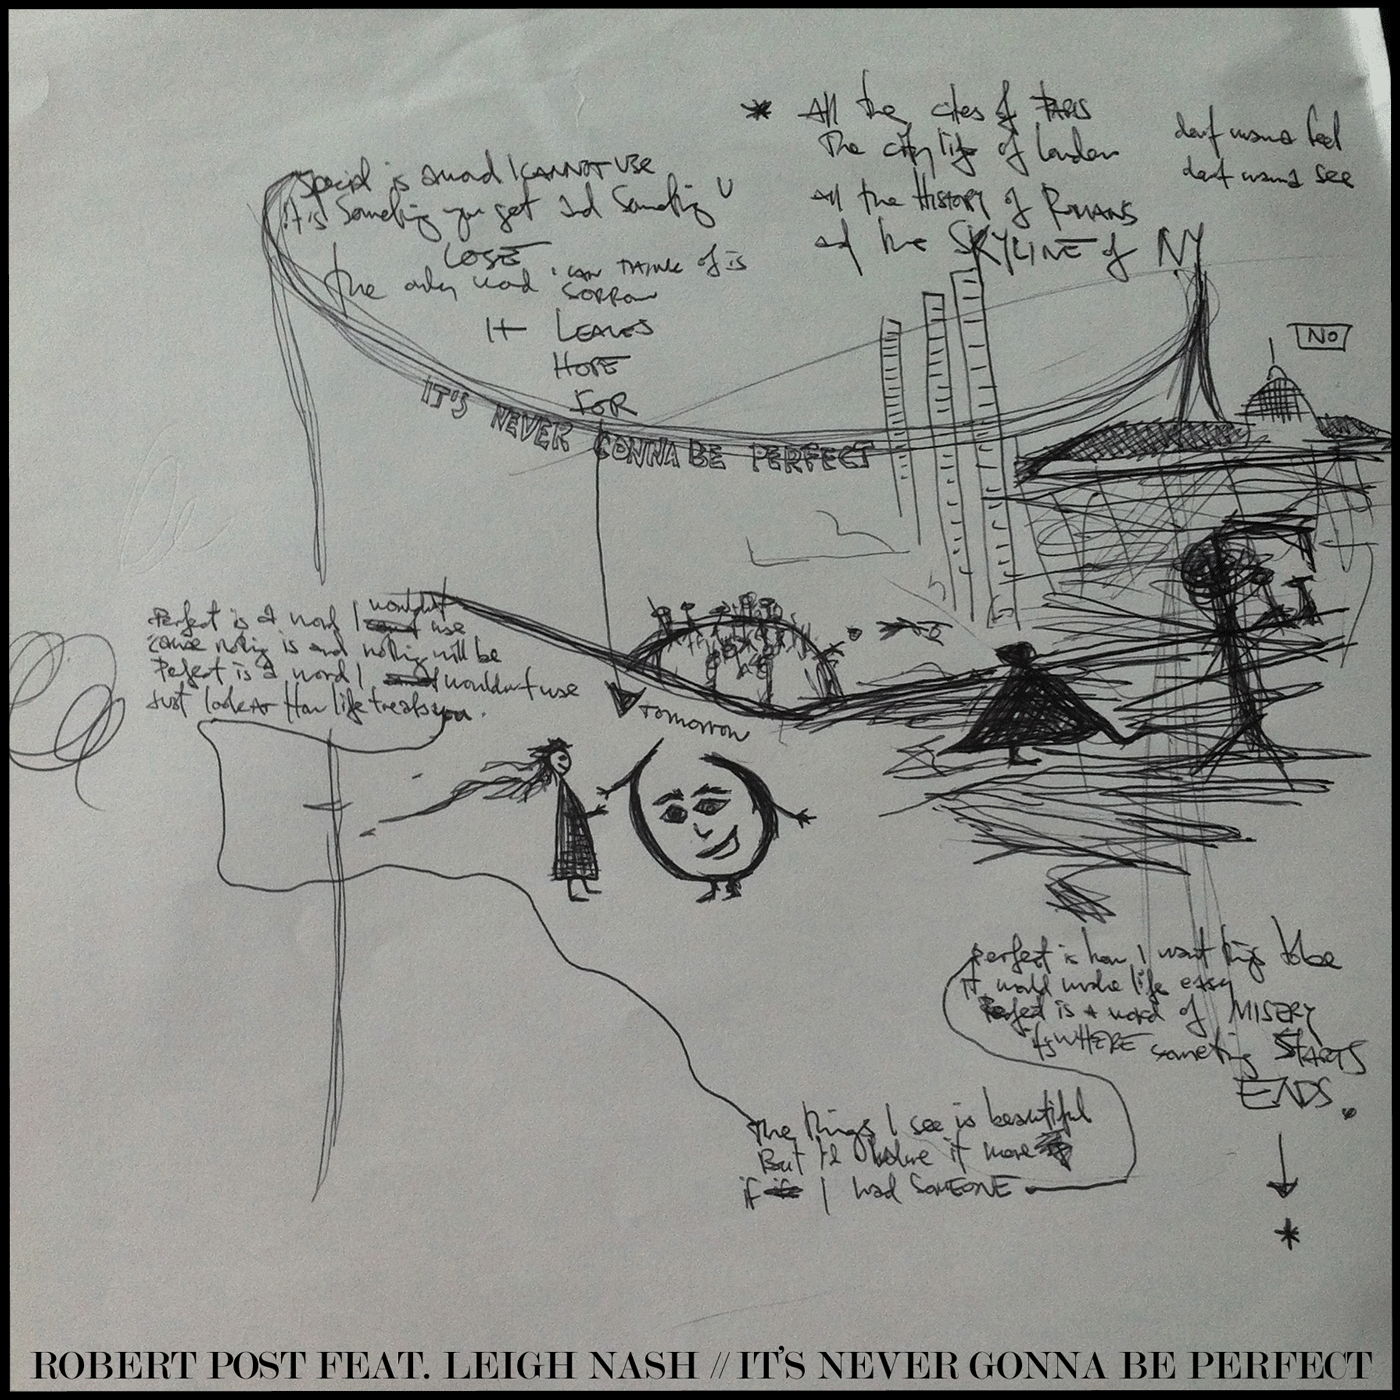 * All the cites of PARIS
The city life of London
All the HISTORY of ROMANS
and the SKYLINE of NY
dont wanna feel
dont wanna see
Special is a word I CANNOT USE
It's Something you get and Something U
LOSE
the only word I CAN THINK of is
SORROW
It LEAVES
HOPE
FOR
NO
IT'S NEVER GONNA BE PERFECT
Perfect is a word I wouldn't use
'cause nothing is and nothing will be
Perfect is a word I wouldn't use
Just look at How life treats you.
Tomorrow
perfect is how I want things to be
it would make life easy
Perfect is a word of MISERY
its WHERE something STARTS
ENDS.
the things I see is beautiful
But I'd believe it more
if I had SOMEONE
*
ROBERT POST FEAT. LEIGH NASH // IT'S NEVER GONNA BE PERFECT